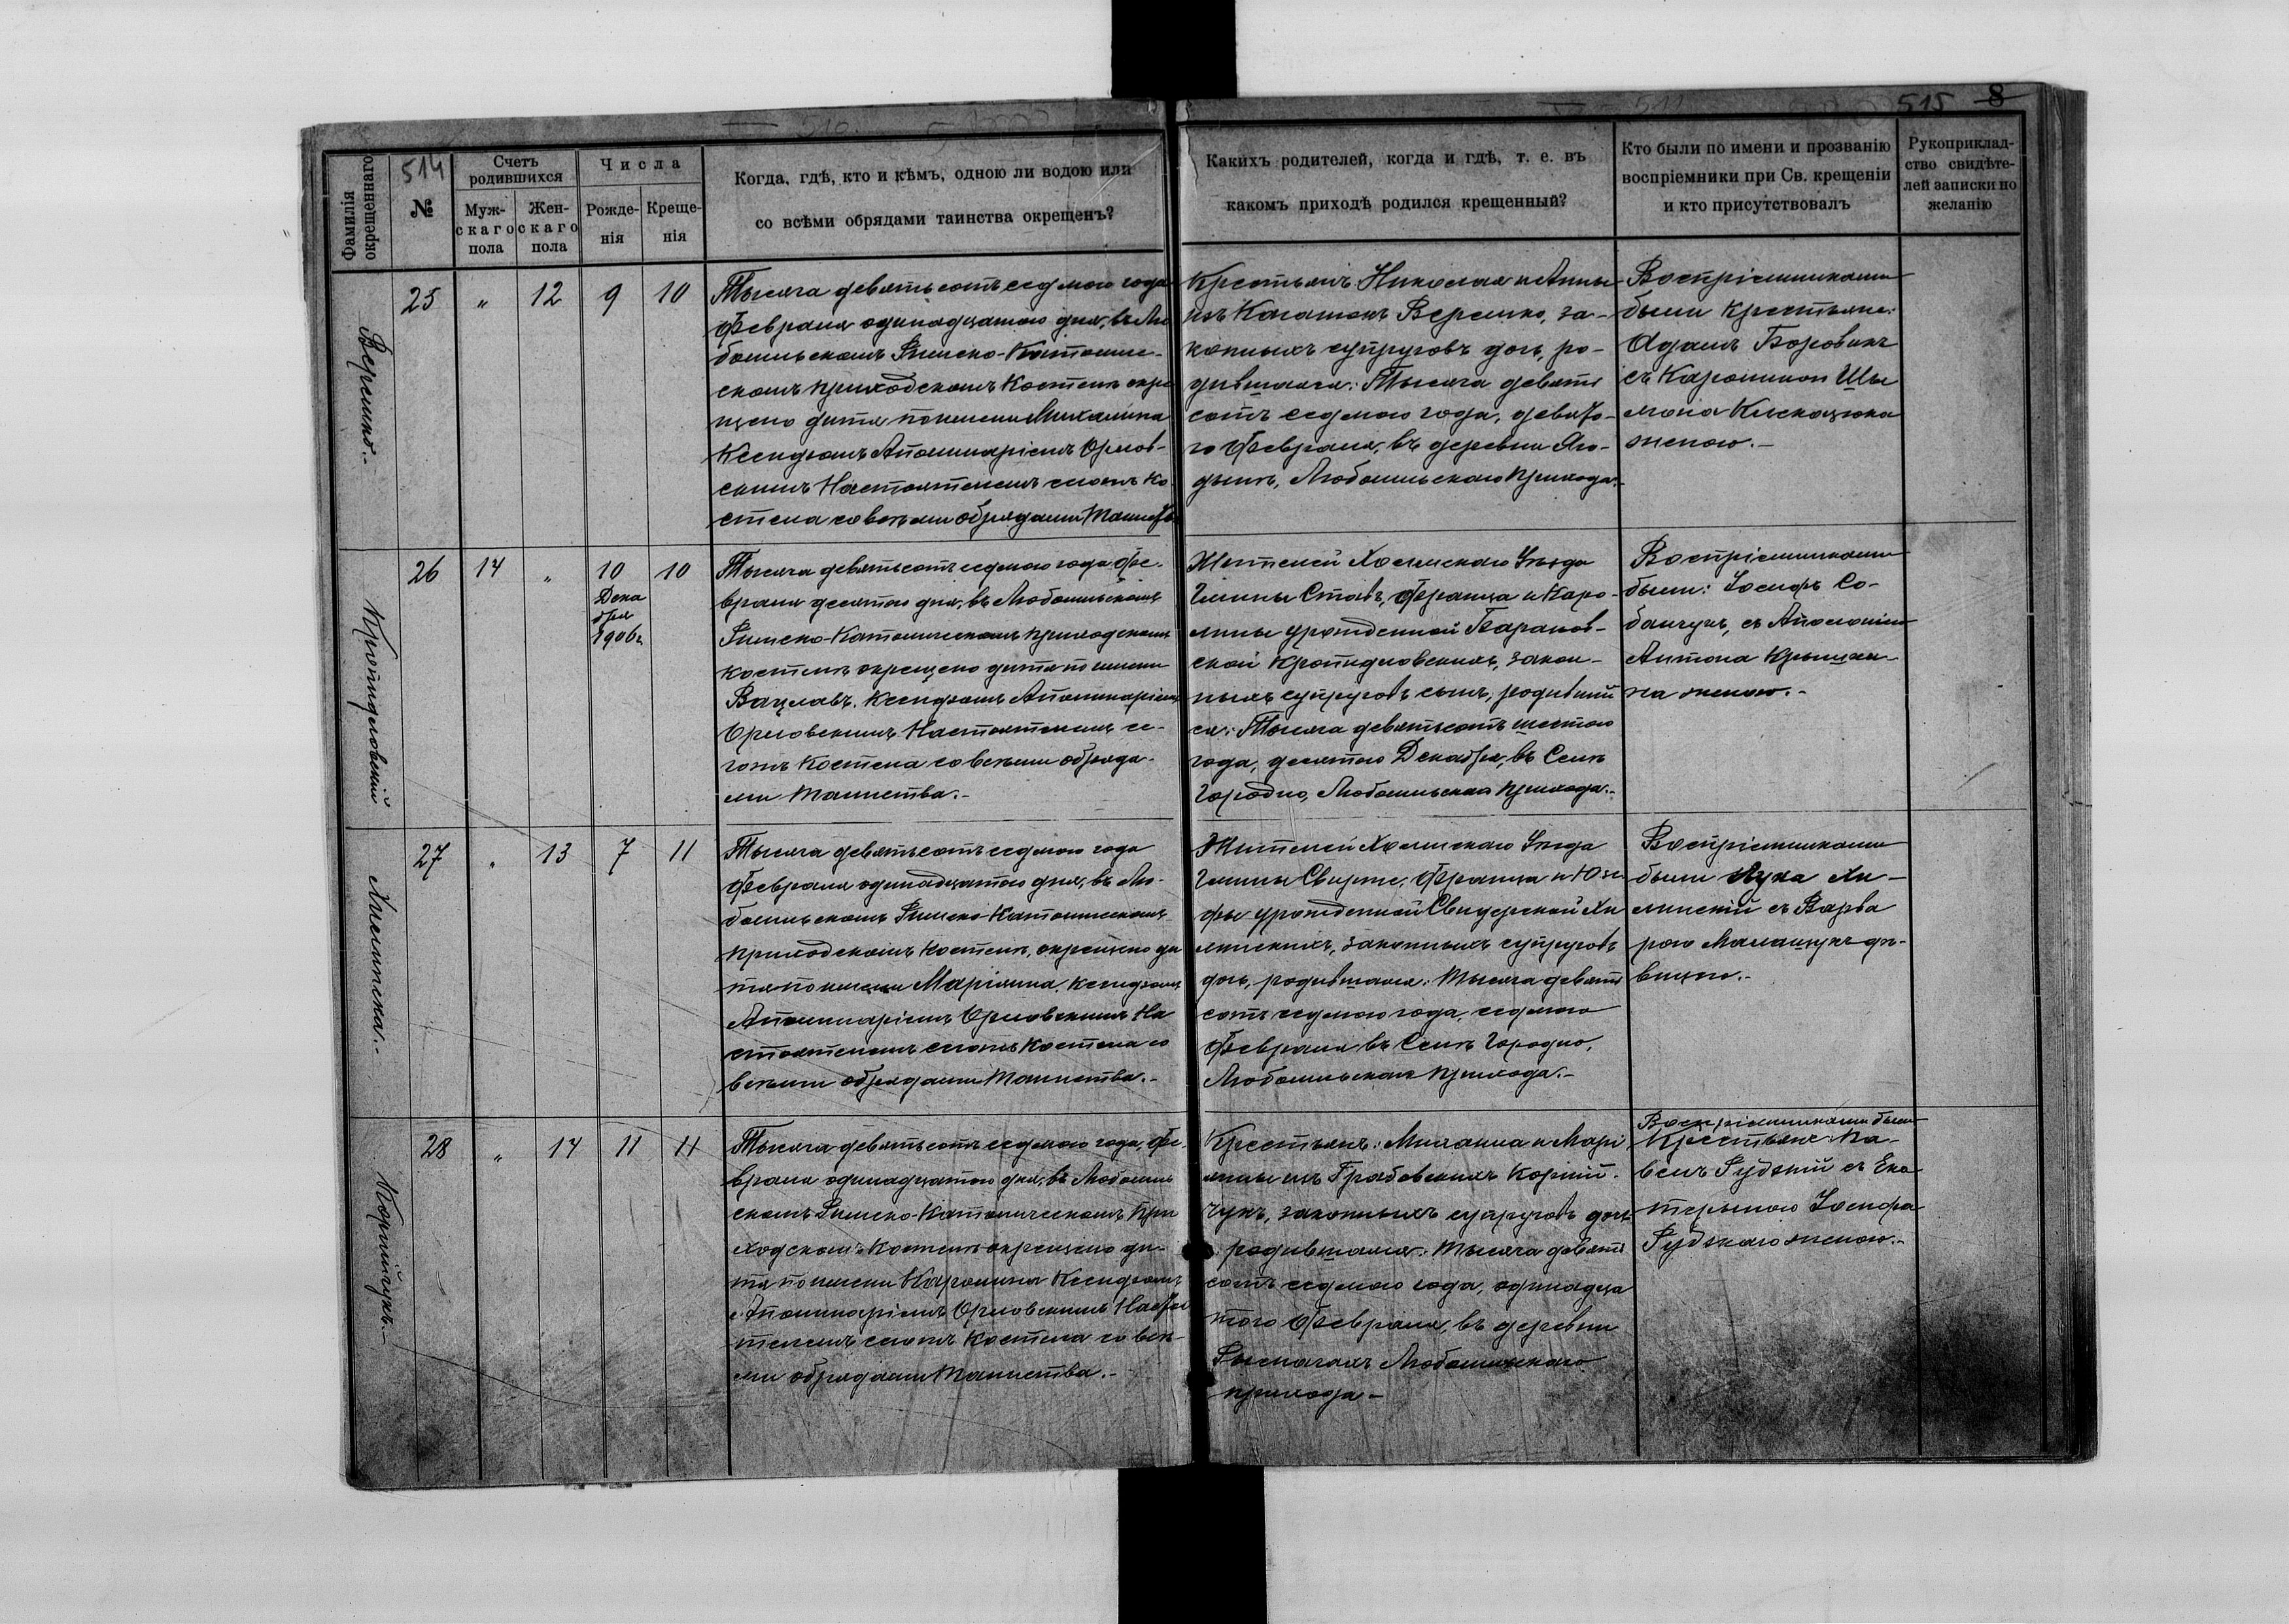 515 8
514
Фамилія окрещеннаго
№
Счетъ родившихся
Муж-
скаго
пола
Жен-
скаго
пола
Числа
Рожде-
нія
Креще-
нія
Когда, гдѣ, кто и кѣмъ, одною ли водою или
со всѣми обрядами таинства окрещенъ?
Какихъ родителей, когда и гдѣ, т. е. въ
какомъ приходѣ родился крещенный?
Кто были по имени и прозванію
воспріемники при Св. крещеніи
и кто присутствовалъ
Рукоприклад-
ство свидѣте-
лей записки по
желанію
Веремко.-
25 " 12 9 10
Тысяча девятьсотъ седмого года
Февраля одинадцатого дня, въ Лю
бомльскомъ Римско-Католиче-
скомъ приходскомъ Костелѣ окре
щено дитя по имени Михалина
Ксендзомъ Аполинаріемъ Орлов-
скимъ Настоятелемъ сегожъ Ко
стела со всѣми обрядами Таинства
Крестьянъ Николая и Анны
изъ Веремко, за-
конныхъ супруговъ дочь, ро-
дившаяся: Тысяча девять
сотъ седмого года, девято-
го Февраля, въ деревни Яго-
дынѣ, Любомльскаго прихода.-
Воспріемниками
были крестьяне:
Адамъ Боровикъ
съ Каролиною Шы
мона
женою.-
26 14 " 10 10
Дека
бря
1906г.
Кропидловскій
Тысяча девятьсотъ седмого года Фе-
враля десятого дня, въ Любомльскомъ
Римско-Католическомъ приходскомъ
костелѣ окрещено дитя по имени
Вацлавъ. Ксендзомъ Аполинаріемъ
Орловскимъ Настоятелемъ се-
гожъ Костела со всѣми обряда-
ми Таинства.-
Жителей Холмскаго Уѣзда
Гмины Ставъ, Франца и Каро-
лины урожденной Баранов-
ской Кропидловскихъ, закон-
ныхъ супруговъ сынъ, родивший
ся: Тысяча девятьсотъ шестого
года, десятого Декабря, въ Селѣ
Городно, Любомльскаго прихода.-
Воспріемниками
были: Іосифъ Со-
банчукъ, съ Аполоніею
Антона
на женою.-
27 " 13 7 11
Хилинска.-
Тысяча девятьсотъ седмого года
Февраля одинадцатого дня, въ Лю-
бомльскомъ Римско-Католическомъ
приходскомъ Костелѣ, окрещено ди
тя по имени Маріянна. Ксендзомъ
Аполинаріемъ Орловскимъ На
стоятелемъ сегожъ Костела со
всѣми обрядами Таинства.-
Жителей Холмскаго Уѣзда
Гмины Свирже, Франца и Юзе
фы урожденной Свидерской Хи
линскихъ, законныхъ супруговъ
дочь, родившаяся: Тысяча девять
сотъ седмого года, седмого
Февраля въ Селѣ Городно,
Любомльскаго прихода.-
Воспріемниками
были Лука Хи-
линскій съ Варва
рою Маланчукъ дѣ-
вицею.-
28 " 14 11 11
Корнійчукъ.-
Тысяча девятьсотъ седмого года, Фе-
враля одинадцатого дня, въ Любомль
скомъ Римско-Католическомъ при
ходскомъ Костелѣ окрещено ди-
тя по имени Каролина Ксендзомъ
Аполинаріемъ Орловскимъ Настоя
телемъ сегожъ Костела со всѣ-
ми обрядами Таинства.-
Крестьянъ: Михаила и Марі
янны изъ Грабовскихъ Корній-
чукъ, законныхъ супруговъ дочь
родившаяся: Тысяча девять
сотъ седмого года, одинадца
того Февраля, въ деревни
Рымачахъ Любомльскаго
прихода.-
Воспріемниками были
Крестьяне Па-
велъ Рудзкій съ Ека
териною Іосифа
Рудзкаго женою.-